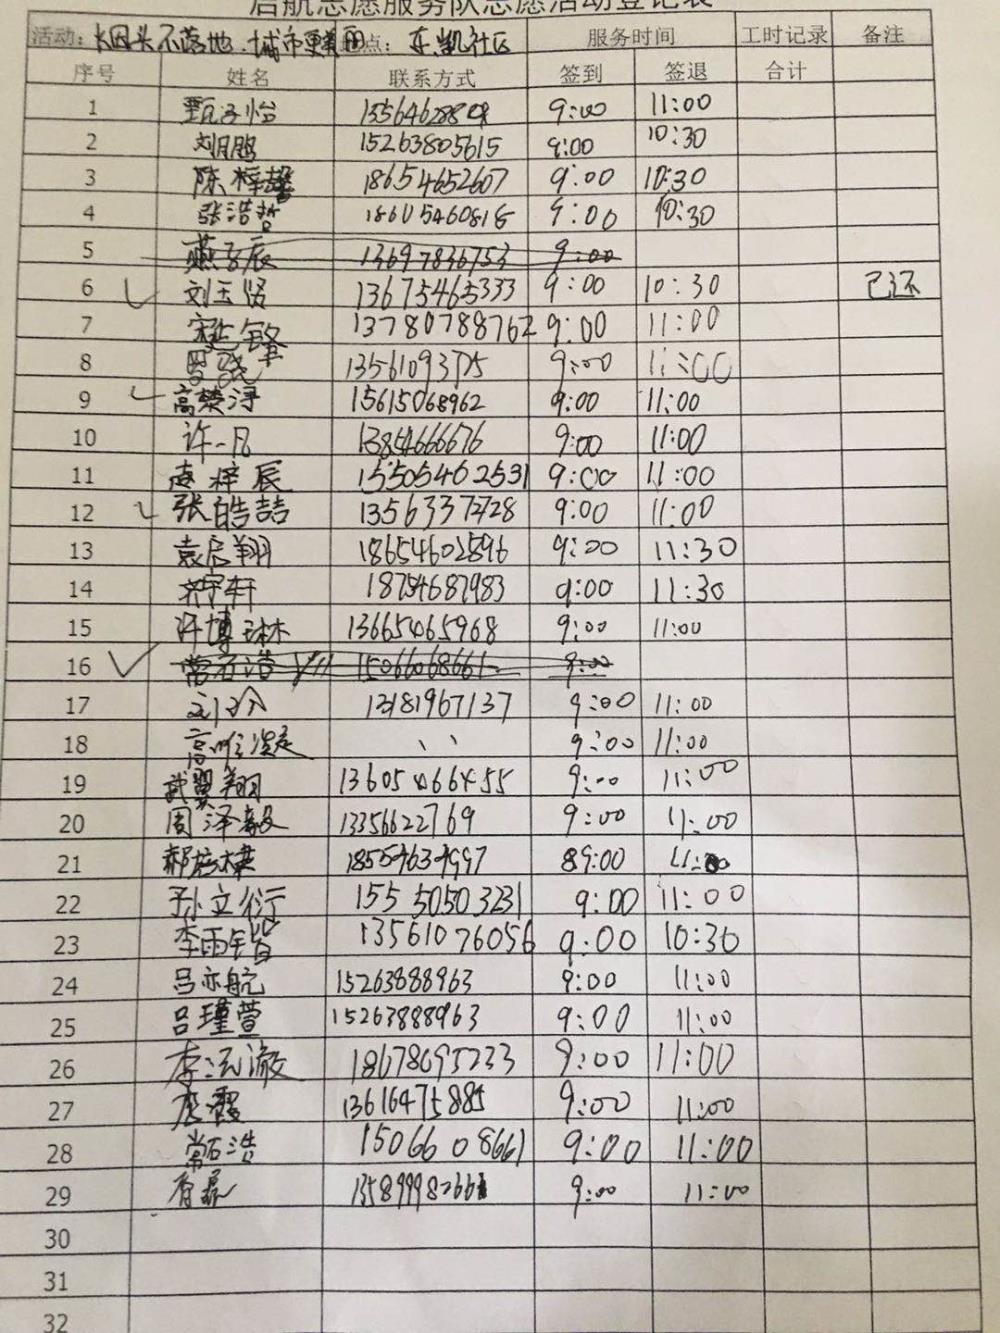 启航志愿服务队志愿活动登记表
活动: 烟头不落地,城市更美丽 点: 东凯社区 服务时间 工时记录 备注
序号 姓名 联系方式 签到 签退 合计
1 甄子怡 9:00 11:00
2 刘月鹏 15263805615 9:00 10:30
3 陈梓馨 18654652607 9:00 10:30
4 张浩哲 18605460818 9:00 10:30
5 燕子辰 13697836753 9:00
6 刘玉贤 13675465333 9:00 10:30 已还
7 13780788762 9:00 11:00
8 13561093775 9:00 11:00
9 高楚淳 15615068962 9:00 11:00
10 许一凡 13854666676 9:00 11:00
11 袁梓辰 15505462531 9:00 11:00
12 张皓喆 13563372728 9:00 11:00
13 袁启翔 18654602896 9:00 11:30
14 齐宇轩 18754687983 9:00 11:30
15 许博琳 13665465968 9:00 11:00
16 常石浩 15066068661 9:00
17 13181967137 9:00 11:00
18 9:00 11:00
19 武翼翔 13605466455 9:00 11:00
20 周泽毅 13356622769 9:00 11:00
21 18554634997 89:00 11:00
22 孙立衍 15550503231 9:00 11:00
23 李雨锴 13561076056 9:00 10:30
24 吕亦航 15263888963 9:00 11:00
25 吕瑾萱 15263888963 9:00 11:00
26 李泓澈 18678695233 9:00 11:00
27 李霞 13616475885 9:00 11:00
28 常石浩 15066 08661 9:00 11:00
29 9:00 11:00
30
31
32